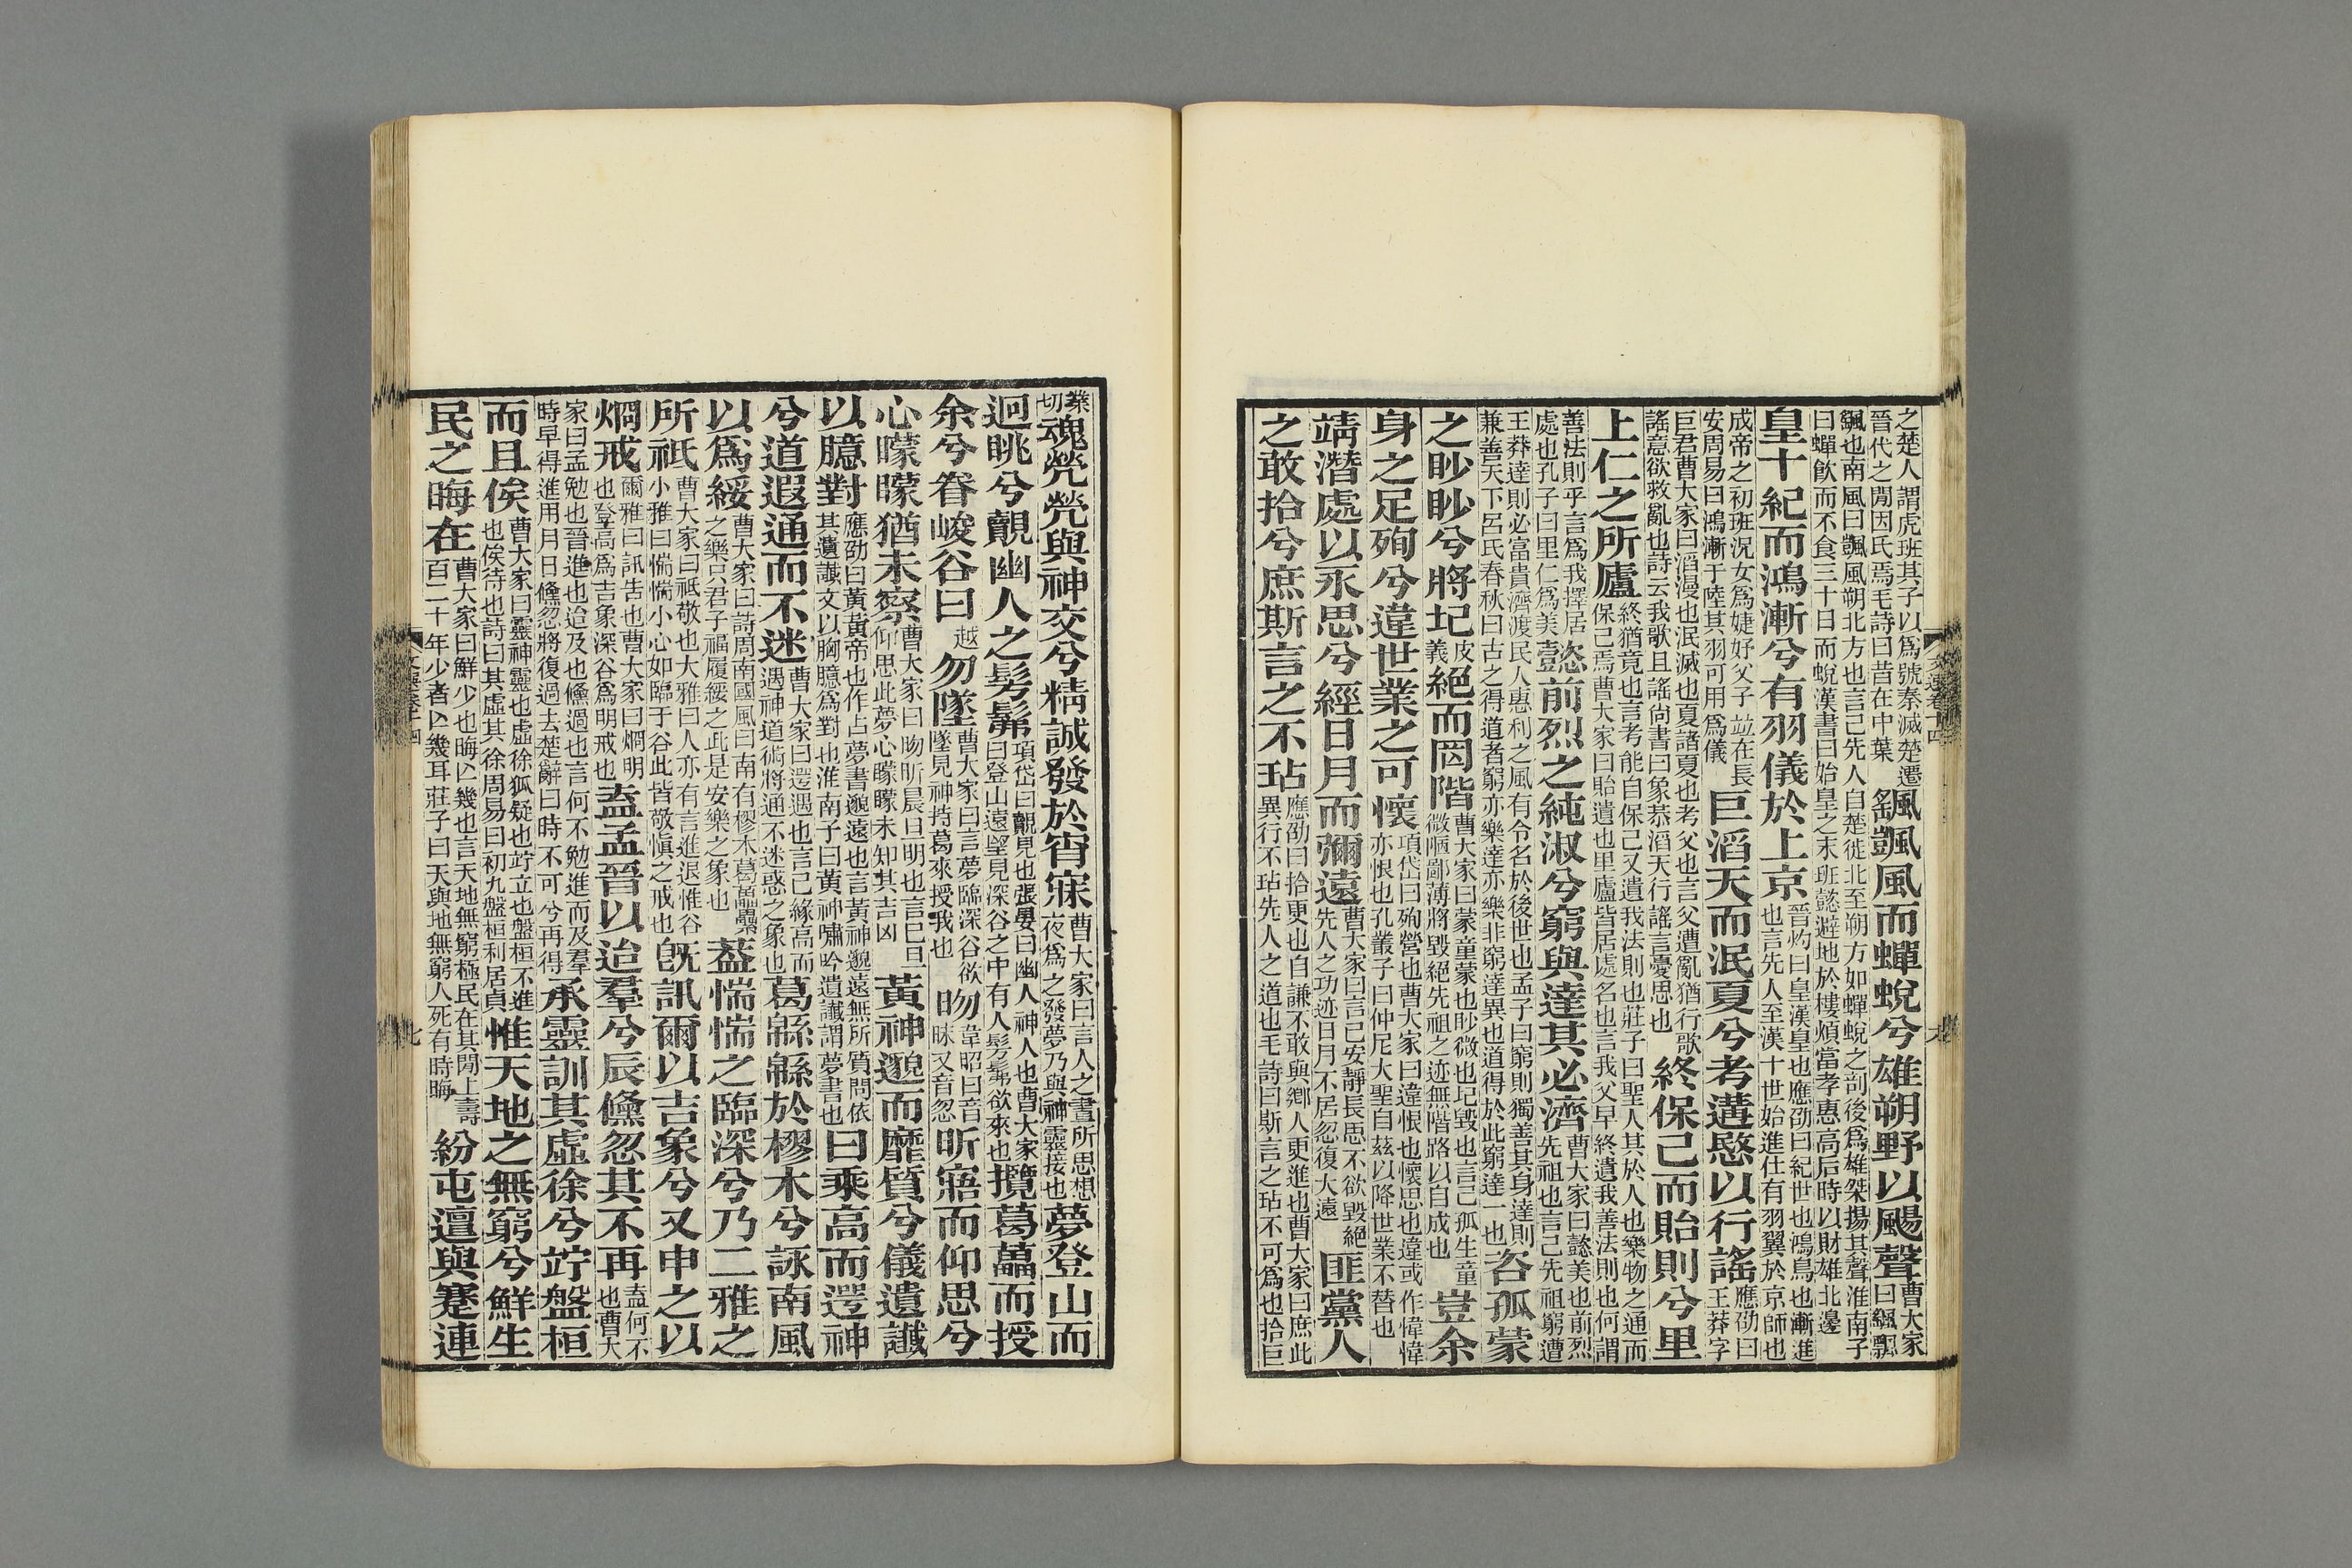 之楚人謂虎班其子以爲號秦滅楚遷晉代之閒因氏焉毛詩曰昔在中葉颻颽風而蟬蛻兮雄朔野以颺聲曹大家曰颻飄
颻也南風曰颽風朔北方也言己先人自楚徙北至朔方如蟬蛻之剖後爲雄桀揚其聲淮南子曰蟬飲而不食三十日而蛻漢書曰始皇之末班懿避地於樓煩當孝惠高后時以財雄北邊
皇十紀而鴻漸兮有羽儀於上京晉灼曰皇漢皇也應劭曰紀世也鴻鳥也漸進也言先人至漢十世始進仕有羽翼於京師也
成帝之初班況女爲婕妤父子竝在長安周易曰鴻漸于陸其羽可用爲儀巨滔天而泯夏兮考遘愍以行謠應劭曰王莽字
巨君曹大家曰滔漫也泯滅也夏諸夏也考父也言父遭亂猶行歌謠意欲救亂也詩云我歌且謠尚書曰象恭滔天行謠言憂思也終保己而貽則兮里
上仁之所廬終猶竟也言考能自保己又遺我法則也莊子曰聖人其於人也樂物之通而保己焉曹大家曰貽遺也里廬皆居處名也言我父早終遺我善法則也何謂
善法則乎言爲我擇居處也孔子曰里仁爲美懿前烈之純淑兮窮與達其必濟曹大家曰懿美也前烈先祖也言己先祖窮遭
王莽達則必富貴濟渡民人惠利之風有令名於後世也孟子曰窮則獨善其身達則兼善天下呂氏春秋曰古之得道者窮亦樂達亦樂非窮達異也道得於此窮達一也咨孤蒙
之眇眇兮將圮皮義絕而罔階曹大家曰蒙童蒙也眇微也圮毀也言己孤生童微陋鄙薄將毀絕先祖之迹無階路以自成也豈余
身之足殉兮違世業之可懷項岱曰殉營也曹大家曰違恨也懷思也違或作愇愇亦恨也孔叢子曰仲尼大聖自茲以降世業不替也
靖潛處以永思兮經日月而彌遠曹大家曰言己安靜長思不欲毀絕先人之功迹日月不居忽復大遠匪黨人
之敢拾兮庶斯言之不玷應劭曰拾更也自謙不敢與鄉人更進也曹大家曰庶此異行不玷先人之道也毛詩曰斯言之玷不可爲也拾巨
業切魂煢煢與神交兮精誠發於宵寐曹大家曰言人之晝所思想夜爲之發夢乃與神靈接也夢登山而
迥眺兮覿幽人之髣髴項岱曰覿見也張晏曰幽人神人也曹大家曰登山遠望見深谷之中有人髣髴欲來也攬葛藟而授
余兮眷峻谷曰越勿墜曹大家曰言夢臨深谷欲墜見神持葛來授我也昒韋昭曰音昧又音忽昕寤而仰思兮
心矇矇猶未察曹大家曰昒昕晨旦明也言己旦仰思此夢心矇矇未知其吉凶黃神邈而靡質兮儀遺讖
以臆對應劭曰黃黃帝也作占夢書邈遠也言黃神邈遠無所質問依其遺讖文以胸臆爲對也淮南子曰黃神嘯吟遺讖謂夢書也曰乘高而遌神
兮道遐通而不迷曹大家曰遌遇也言己緣高而遇神道術將通不迷惑之象也葛緜緜於樛木兮詠南風
以爲綏曹大家曰詩周南國風曰南有樛木葛藟纍之樂只君子福履綏之此是安樂之象也葢惴惴之臨深兮乃二雅之
所祗曹大家曰祗敬也大雅曰人亦有言進退惟谷小雅曰惴惴小心如臨于谷此皆敬愼之戒也旣訊爾以吉象兮又申之以
烱戒爾雅曰訊告也曹大家曰烱明也登高爲吉象深谷爲明戒也盍孟晉以迨羣兮辰倏忽其不再盍何不也曹大
家曰孟勉也晉進也迨及也倏過也言何不勉進而及羣時早得進用月日倏忽將復過去楚辭曰時不可兮再得承靈訓其虛徐兮竚盤桓
而且俟曹大家曰靈神靈也虛徐狐疑也竚立也盤桓不進也俟待也詩曰其虛其徐周易曰初九盤桓利居貞惟天地之無窮兮鮮生
民之晦在曹大家曰鮮少也晦亾幾也言天地無窮極民在其閒上壽百二十年少者亾幾耳莊子曰天與地無窮人死有時晦紛屯邅與蹇連